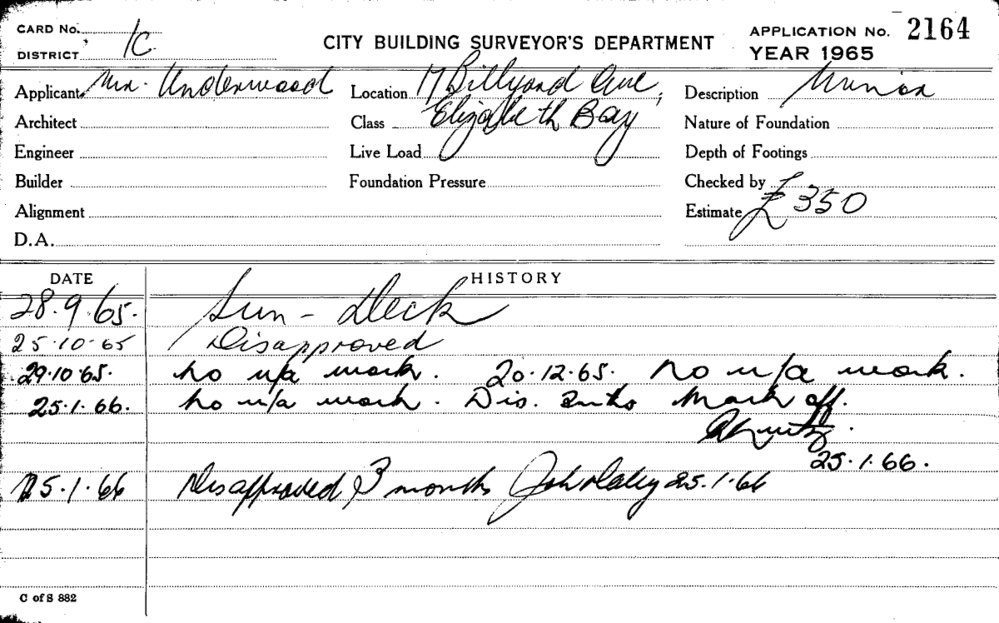 CARD No. 1C. CITY BUILDING SURVEYOR'S DEPARTMENT APPLICATION No. 2164
DISTRICT YEAR 1965
Applicant Underwood Location 17 Billyard Ave, Description Minor
Architect Class Elizabeth Bay Nature of Foundation
Engineer Live Load Depth of Footings
Builder Foundation Pressure Checked by
Alignment Estimate £350
D.A.
DATE HISTORY
28.9.65. Sun-Deck
25.10.65 Disapproved
29.10.65. no u/a work. 20.12.65. No u/a work.
25.1.66. no u/a work. Dis. Mark off.
25.1.66.
25.1.66 Disapproved 3 months John Daley 25.1.66
C of S 882